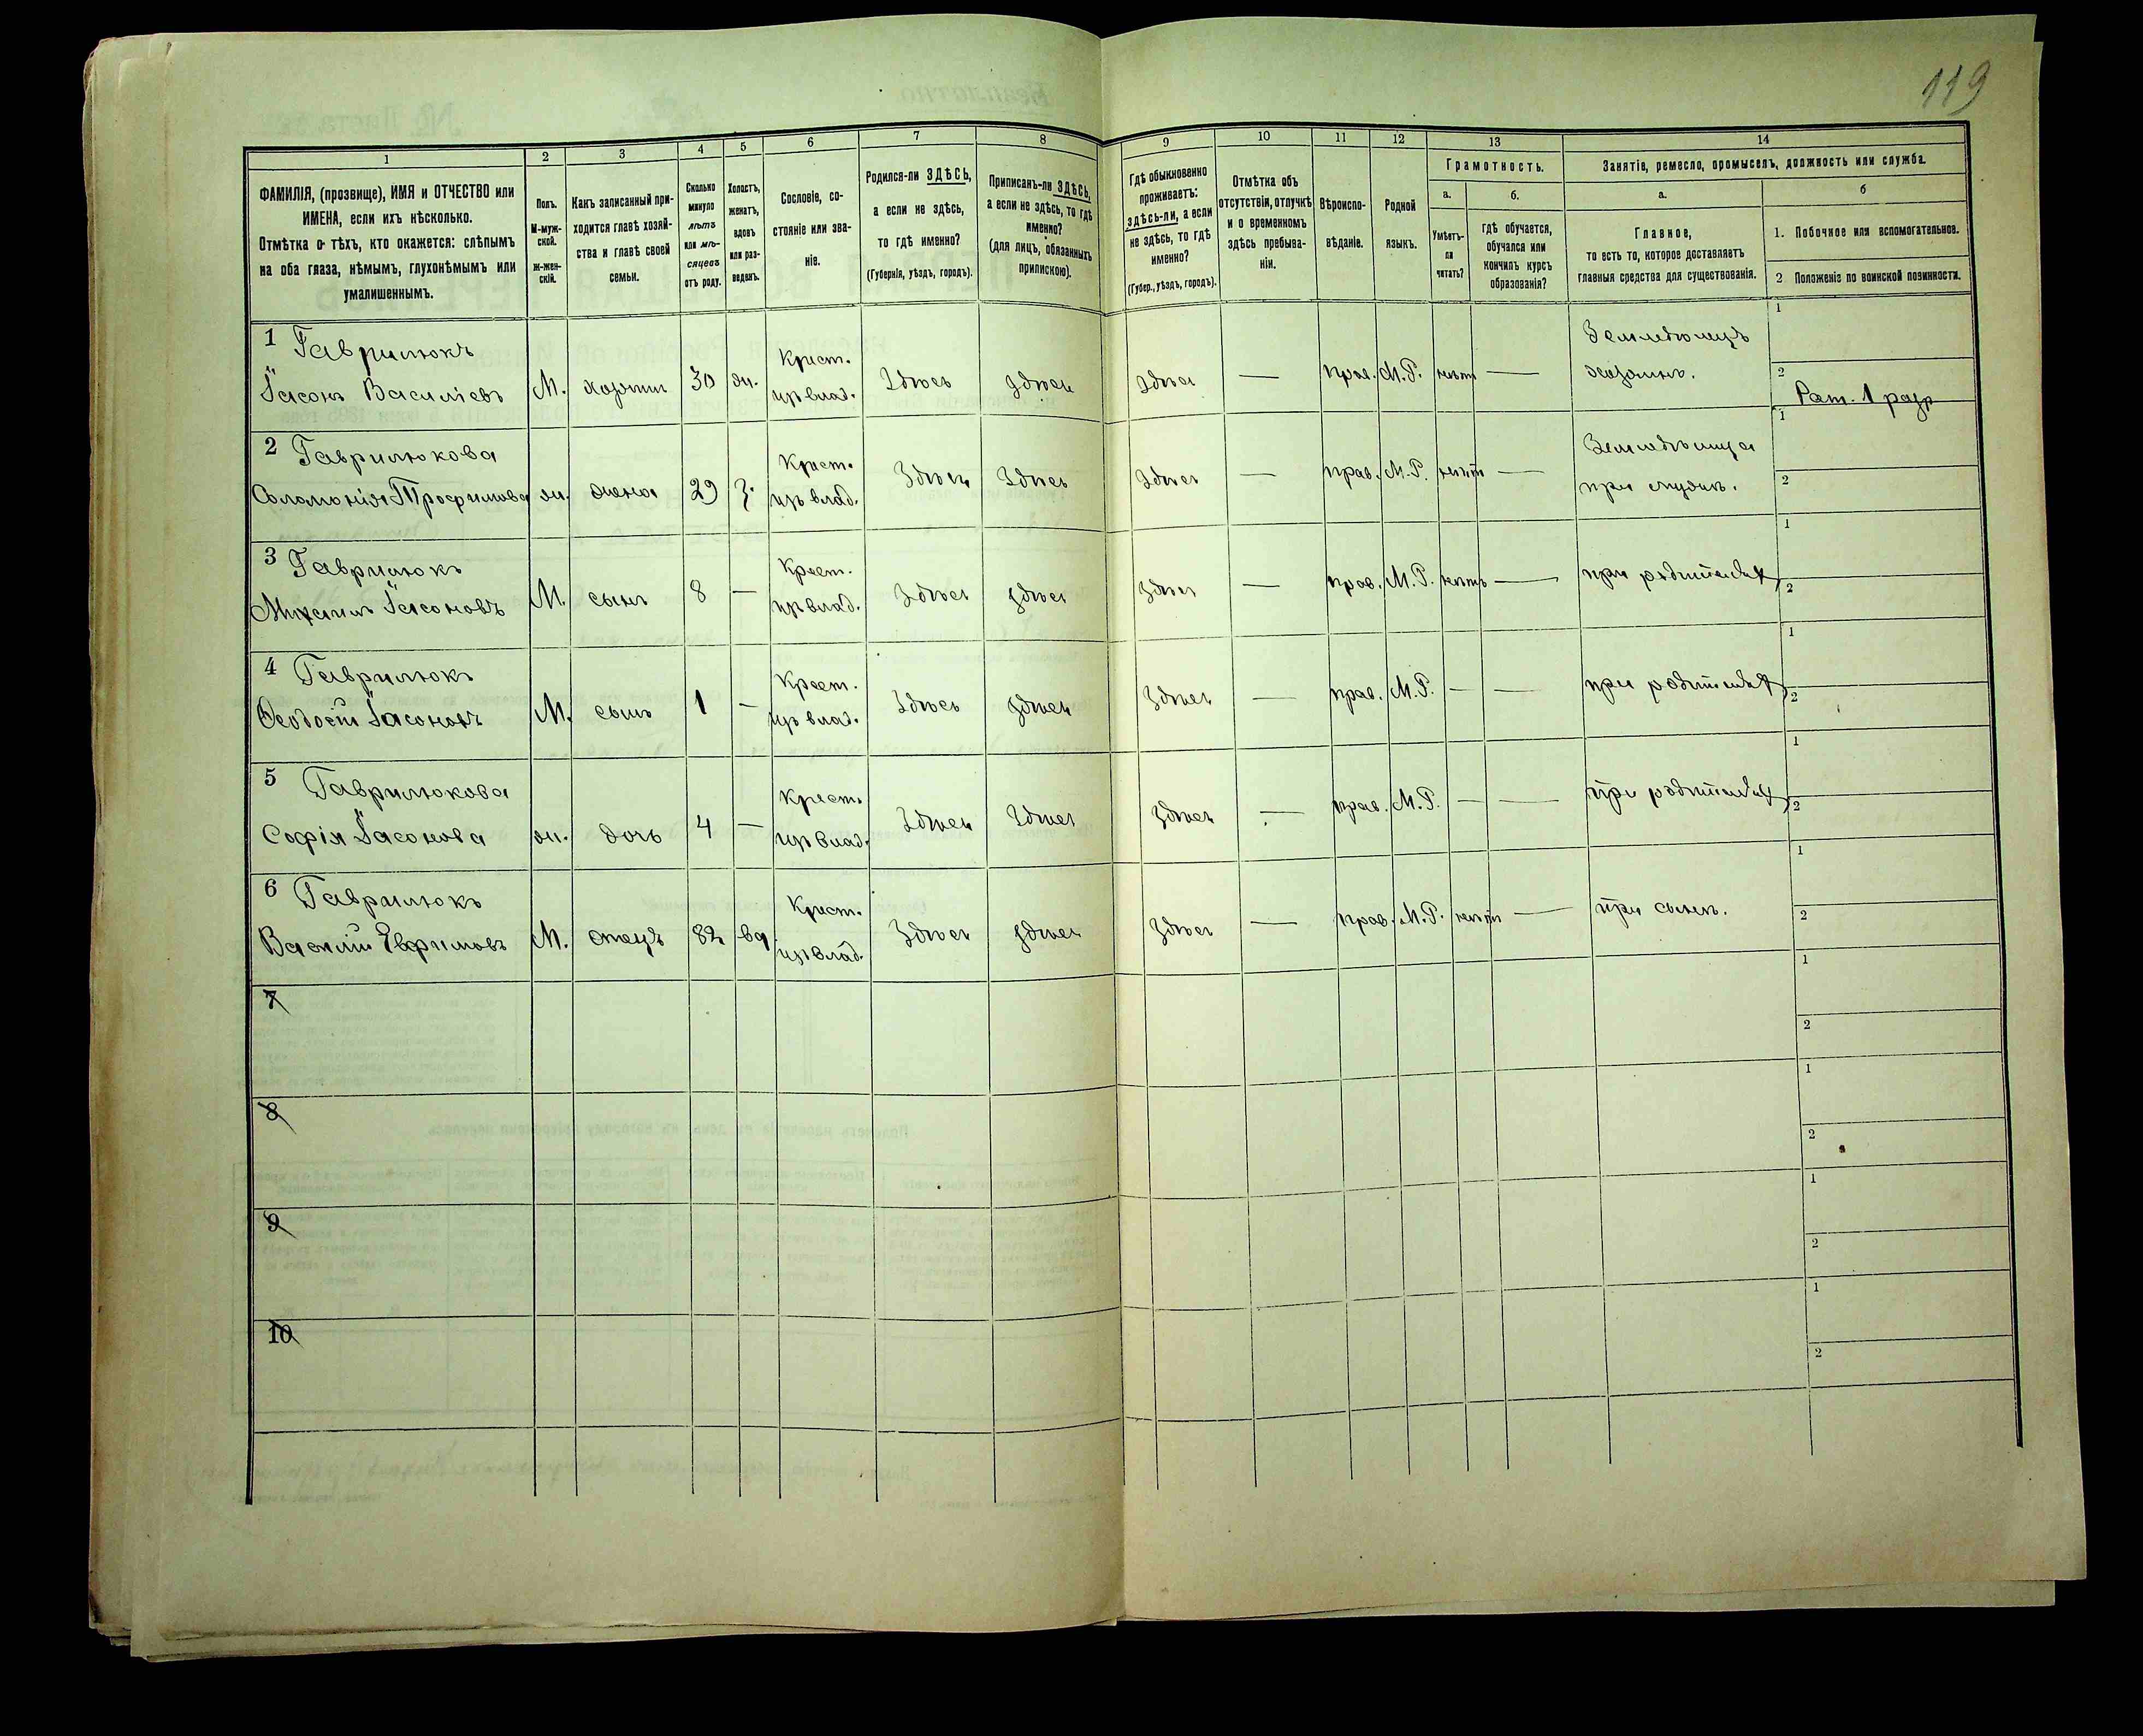 119
1
ФАМИЛІЯ, (прозвище), ИМЯ и ОТЧЕСТВО или
ИМЕНА, если ихъ нѣсколько.
Отмѣтка о тѣхъ, кто окажется: слѣпымъ
на оба глаза, нѣмымъ, глухонѣмымъ или
умалишеннымъ.
2
Полъ.
М-муж-
ской.
Ж-жен-
скій.
3
Какъ записанный при-
ходится главѣ хозяй-
ства и главѣ своей
семьи.
4
Сколько
минуло
лѣтъ
или мѣ-
сяцевъ
отъ роду.
5
Холостъ,
женатъ,
вдовъ
или раз-
веденъ.
6
Сословіе, со-
стояніе или зва-
ніе.
7
Родился-ли ЗДѢСЬ,
а если не здѣсь,
то гдѣ именно?
(Губернія, уѣздъ, городъ).
8
Приписанъ-ли ЗДѢСЬ,
а если не здѣсь, то гдѣ
именно?
(для лицъ, обязанныхъ
припискою).
9
Гдѣ обыкновенно
проживаетъ:
здѣсь-ли, а если
не здѣсь, то гдѣ
именно?
(Губер., уѣздъ, городъ).
10
Отмѣтка объ
отсутствіи, отлучкѣ
и о временномъ
здѣсь пребыва-
ніи.
11
Вѣроиспо-
вѣданіе.
12
Родной
языкъ.
13
Грамотность.
а.
Умѣетъ-
ли
читать?
б.
гдѣ обучается,
обучался или
кончилъ курсъ
образованія?
14
Занятіе, ремесло, промыселъ, должность или служба.
а.
Главное,
то есть то, которое доставляетъ
главныя средства для существованія.
б
1. Побочное или вспомогательное.
2 Положеніе по воинской повинности.
1 Гаврилюкъ
Іасонъ Василіевъ М. хозяин 30 ж. Крест. из влад. Здѣсь здѣсь здѣсь — прав. М.Р. нѣтъ — Земледѣлецъ
хозяинъ.
1
2 Рат. 1 разр
2 Гаврилюкова
Соломонія Трофимова ж. жена 29 з. Крест. изъ влад. Здѣсь Здѣсь Здѣсь — прав. М.Р. нѣтъ — Земледѣлица
при мужѣ.
1
2
3 Гаврилюкъ
Михаилъ Іасоновъ М. сынъ 8 — Крест. изъ влад. Здѣсь здѣсь Здѣсь — прав. М.Р. нѣтъ — при родителях
1
2
4 Гаврилюкъ
Ѳеодосій Іасоновъ М. сынъ 1 — Крест. изъ влад. Здѣсь здѣсь Здѣсь — прав. М.Р. — — при родителях
1
2
5 Гаврилюкова
Софія Іасонова ж. дочь 4 — Крест. изъ влад. Здѣсь Здѣсь Здѣсь — прав. М.Р. — — при родителях
1
2
6 Гаврилюкъ
Василій Евфимовъ М. отецъ 82 вд Крест. изъ влад. Здѣсь здѣсь Здѣсь — прав. М.Р. нѣтъ — при сынѣ.
1
2
7
1
2
8
1
2
9
1
2
10
1
2